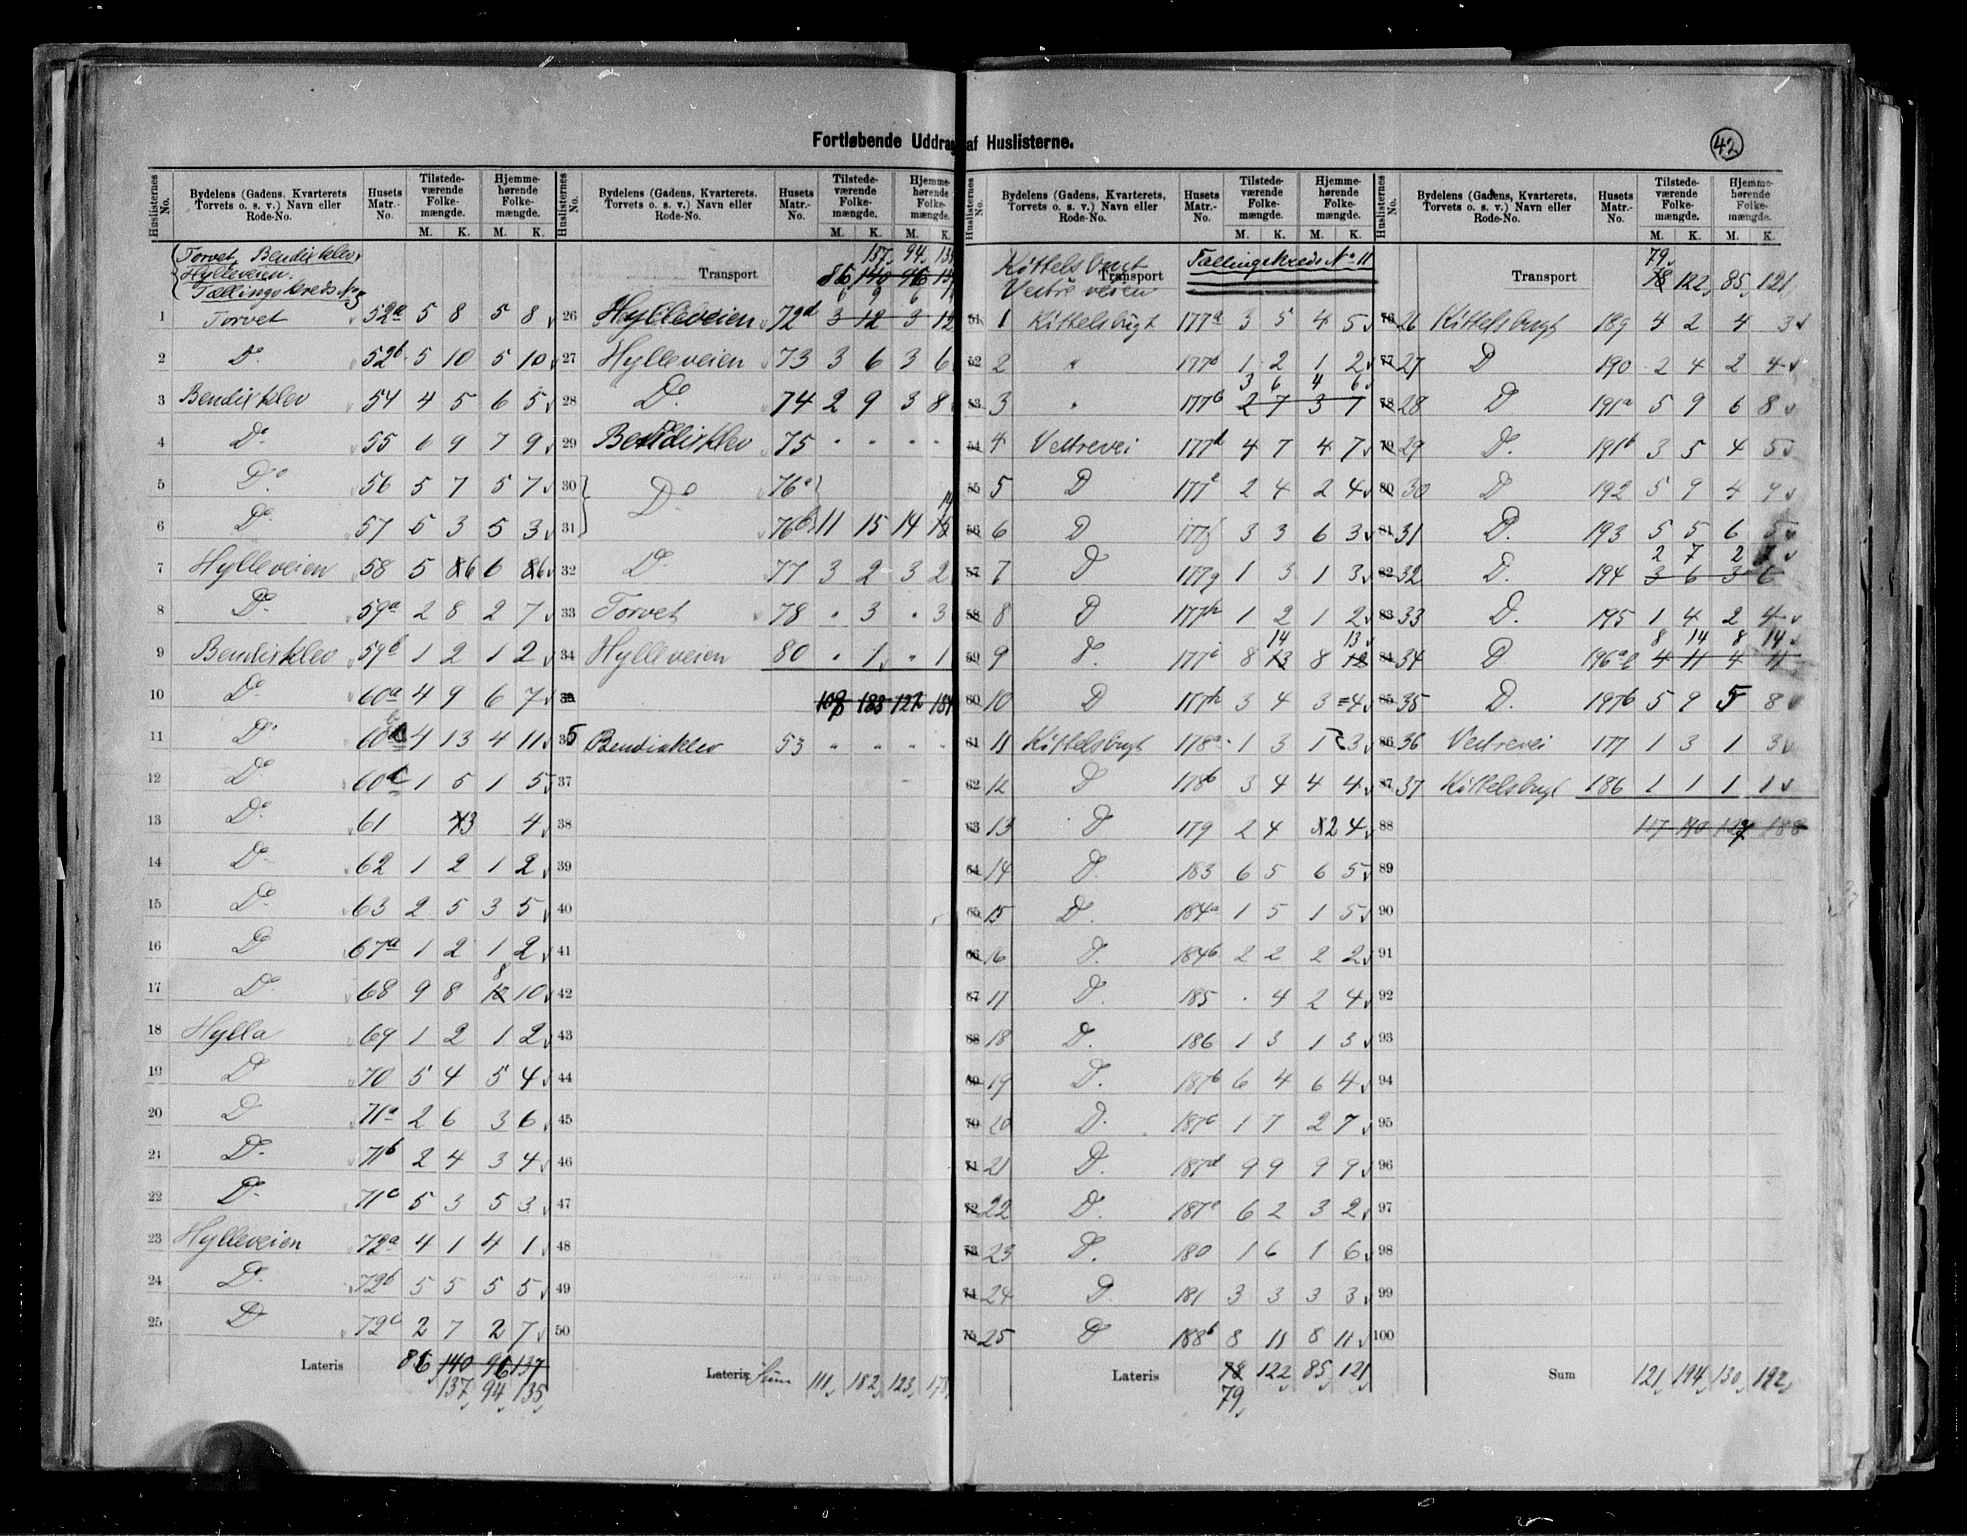 Fortløbende Uddrag af Huslisterne.
42
Huslisternes No. Bydelens (Gadens, Kvarterets Torvets o. s. v.) Navn eller Rode-No. Husets Matr.-No. Tilstedeværende Folkemængde. M. K. Hjemmehørende Folkemængde. M. K.
Torvet, Bendixklev,
Hylleveien.
Tællingskreds No
1 Torvet 52a 5 8 5 8
2 Do 52b 5 10 5 10
3 Bendixklev 54 4 5 6 5
4 Do 55 6 9 7 9
5 Do 56 5 7 5 7
6 Do 57 5 3 5 3
7 Hylleveien 58 5 6 6 6
8 Do 59a 2 8 2 7
9 Bendixklev 59b 1 2 1 2
10 Do 60a 4 9 6 7
11 Do 60 4 13 4 11
12 Do 60c 1 5 1 5
13 Do 61 3 4
14 Do 62 1 2 1 2
15 Do 63 2 5 3 5
16 Do 67a 1 2 1 2
17 Do 68 9 8 8 10
18 Hylla 69 1 2 1 2
19 Do 70 5 4 5 4
20 Do 71a 2 6 3 6
21 Do 71b 2 4 3 4
22 Do 71c 5 3 5 3
23 Hylleveien 72a 4 1 4 1
24 Do 72b 5 5 5 5
25 Do 72c 2 7 2 7
Lateris 86 140 96 137
137 94 135
Huslisternes No. Bydelens (Gadens, Kvarterets, Torvets o. s. v.) Navn eller Rode-No. Husets Matr.-No. Tilstedeværende Folkemængde. M. K. Hjemmehørende Folkemængde. M. K.
137 94 135
Transport 86 140 96
6 9 6
26 Hylleveien 72d 3 12 3 12
27 Hylleveien 73 3 6 3 6
28 Do 74 2 9 3 8
29 Bendixklev 75 " " " "
30 Do 76a
31 76b 11 15 14 14
32 Do 77 3 2 3 2
33 Torvet 78 " 3 " 3
34 Hylleveien 80 " 1 " 1
35 183
36 Bendixklev 53 " " " "
37
38
39
40
41
42
43
44
45
46
47
48
49
50
Lateris Sum 111 182 123
Huslisternes No. Bydelens (Gadens, Kvarterets, Torvets o. s. v.) Navn eller Rode-No. Husets Matr.-No. Tilstedeværende Folkemængde. M. K. Hjemmehørende Folkemængde. M. K.
Kittelsbugt Tællingskreds No 11
Transport
Vestre veien
51 1 Kittelsbugt 177a 3 5 4 5
52 2 " 177b 1 2 1 2
3 6 4 6
53 3 " 177b 2 7 3 7
54 4 Vestrevei 177d 4 7 4 7
55 5 D 177e 2 4 2 4
56 6 D 177f 3 3 6 3
57 7 D 177g 1 3 1 3
58 8 D 177h 1 2 1 2
14 13
59 9 D. 177i 8 13 8 12
60 10 D 3 4 3 4
61 11 Kittelsbugt 178a 1 3 1 3
62 12 D 178b 3 4 4 4
63 13 D 179 2 4 2 4
64 14 D. 183 6 5 6 5
65 15 D. 184a 1 5 1 5
66 16 D. 184b 2 2 2 2
67 17 D. 185 . 4 2 4
68 18 D. 186 1 3 1 3
69 19 D. 187b 6 4 6 4
70 20 D. 187c 1 7 2 7
71 21 D. 187d 9 9 9 9
72 22 D. 187e 6 2 3 2
73 23 D. 180 1 6 1 6
74 24 D 181 3 3 3 3
75 25 D 188b 8 11 8 11
Lateris 78 122 85 121
79
Huslisternes No. Bydelens (Gadens, Kvarterets, Torvets o. s. v.) Navn eller Rode-No. Husets Matr.-No. Tilstedeværende Folkemængde. M. K. Hjemmehørende Folkemængde. M. K.
79
Transport 78 122 85 121
76 26 Kittelsbugt 189 4 2 4 3
77 27 D 190 2 4 2 4
78 28 D 191a 5 9 6 8
79 29 D. 191b 3 5 4 5
80 30 D 192 5 9 4 9
81 31 D. 193 5 5 6 5
2 7 2
82 32 D. 194 3 6 3 6
83 33 D. 195 1 4 2 4
8 14 8 14
84 34 D 196a 4 11 4 11
85 35 D. 197b 5 9 5 8
86 36 Vestrevei 177 1 3 1 3
87 37 Kittelsbugt 186 1 1 1 1
88 117 190 127 188
89
90
91
92
93
94
95
96
97
98
99
100
Sum 121 194 130 192